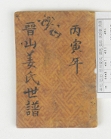 丙寅年
晉山姜氏世譜